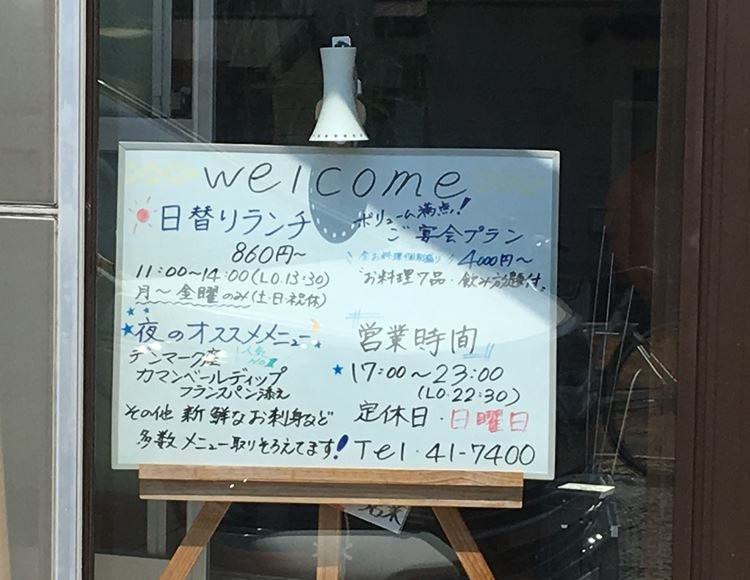 welcome
日替りランチ
860円〜
11:00〜14:00(LO.13:30)
月〜金曜のみ(土・日・祝休)
ボリューム満点!
ご宴会プラン
全お料理個別盛り
4000円〜
お料理7品・飲み放題付
夜のオススメメニュー
人気No.1
デンマーク産
カマンベールディップ
フランスパン添え
その他新鮮なお刺身など
多数メニュー取りそろえてます!
営業時間
17:00〜23:00
(LO.22:30)
定休日・日曜日
Tel・41-7400